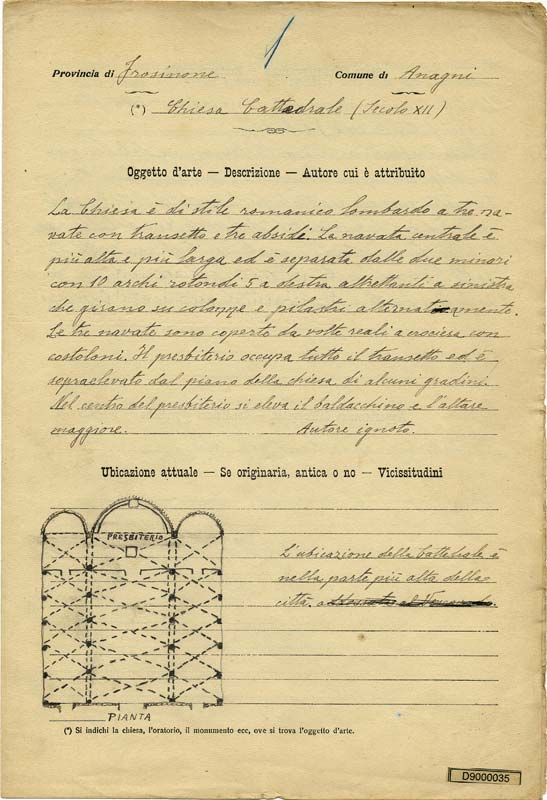 1
Provincia di Frosinone Comune di Anagni
(*) Chiesa Cattedrale (Secolo XII)
Oggetto d'arte — Descrizione — Autore cui è attribuito
La Chiesa è di stile romanico lombardo a tre na-
vate con transetto e tre absidi. La navata centrale è
più alta e più larga ed è separata dalle due minori
con 10 archi rotondi 5 a destra altrettanti a sinistra
che girano su colonne e pilastri alternatamente.
Le tre navate sono coperte da volte reali a crociera con
costoloni. Il presbiterio occupa tutto il transetto ed è
sopraelevato dal piano della chiesa di alcuni gradini.
Nel centro del presbiterio si eleva il baldacchino e l'altare
maggiore. Autore ignoto.
Ubicazione attuale — Se originaria, antica o no — Vicissitudini
PRESBITERIO
L'ubicazione della Cattedrale è
nella parte più alta della
città.
PIANTA
(*) Si indichi la chiesa, l'oratorio, il monumento ecc, ove si trova l'oggetto d'arte.
D9000035